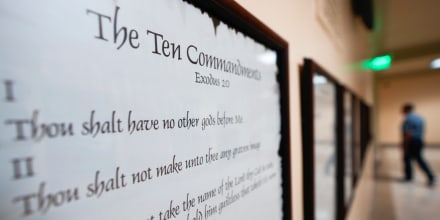 The Ten Commandments
Exodus 20
I
Thou shalt have no other gods before Me
II
Thou shalt not make unto thee any graven image
take the name of the Lord thy God
hold him guiltless that taketh